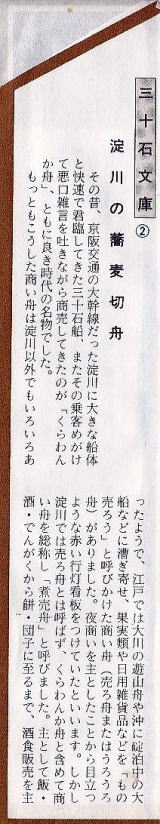 三十石文庫②
淀川の蕎麦切舟
その昔、京阪交通の大幹線だった淀川に大きな船体
と快速で君臨してきた三十石船、またその乗客めがけ
て悪口雑言を吐きながら商売してきたのが「くらわん
か舟」、ともに良き時代の名物でした。
もっともこうした商い舟は淀川以外でもいろいろあ
ったようで、江戸では大川の遊山舟や沖に碇泊中の大
船などに漕ぎ寄せ、果実類や日用雑貨品などを「もの
売ろう」と呼びかけた商い舟（売ろ舟またはうろうろ
舟）がありました。夜商いを主としたことから目立つ
ような赤い行灯看板をつけていたといいます。しかし
淀川では売ろ舟とは呼ばず、くらわんか舟と含めて商
い舟を総称し「煮売舟」と呼びました。主として飯・
酒・でんがくから餅、団子に至るまで、酒食販売を主